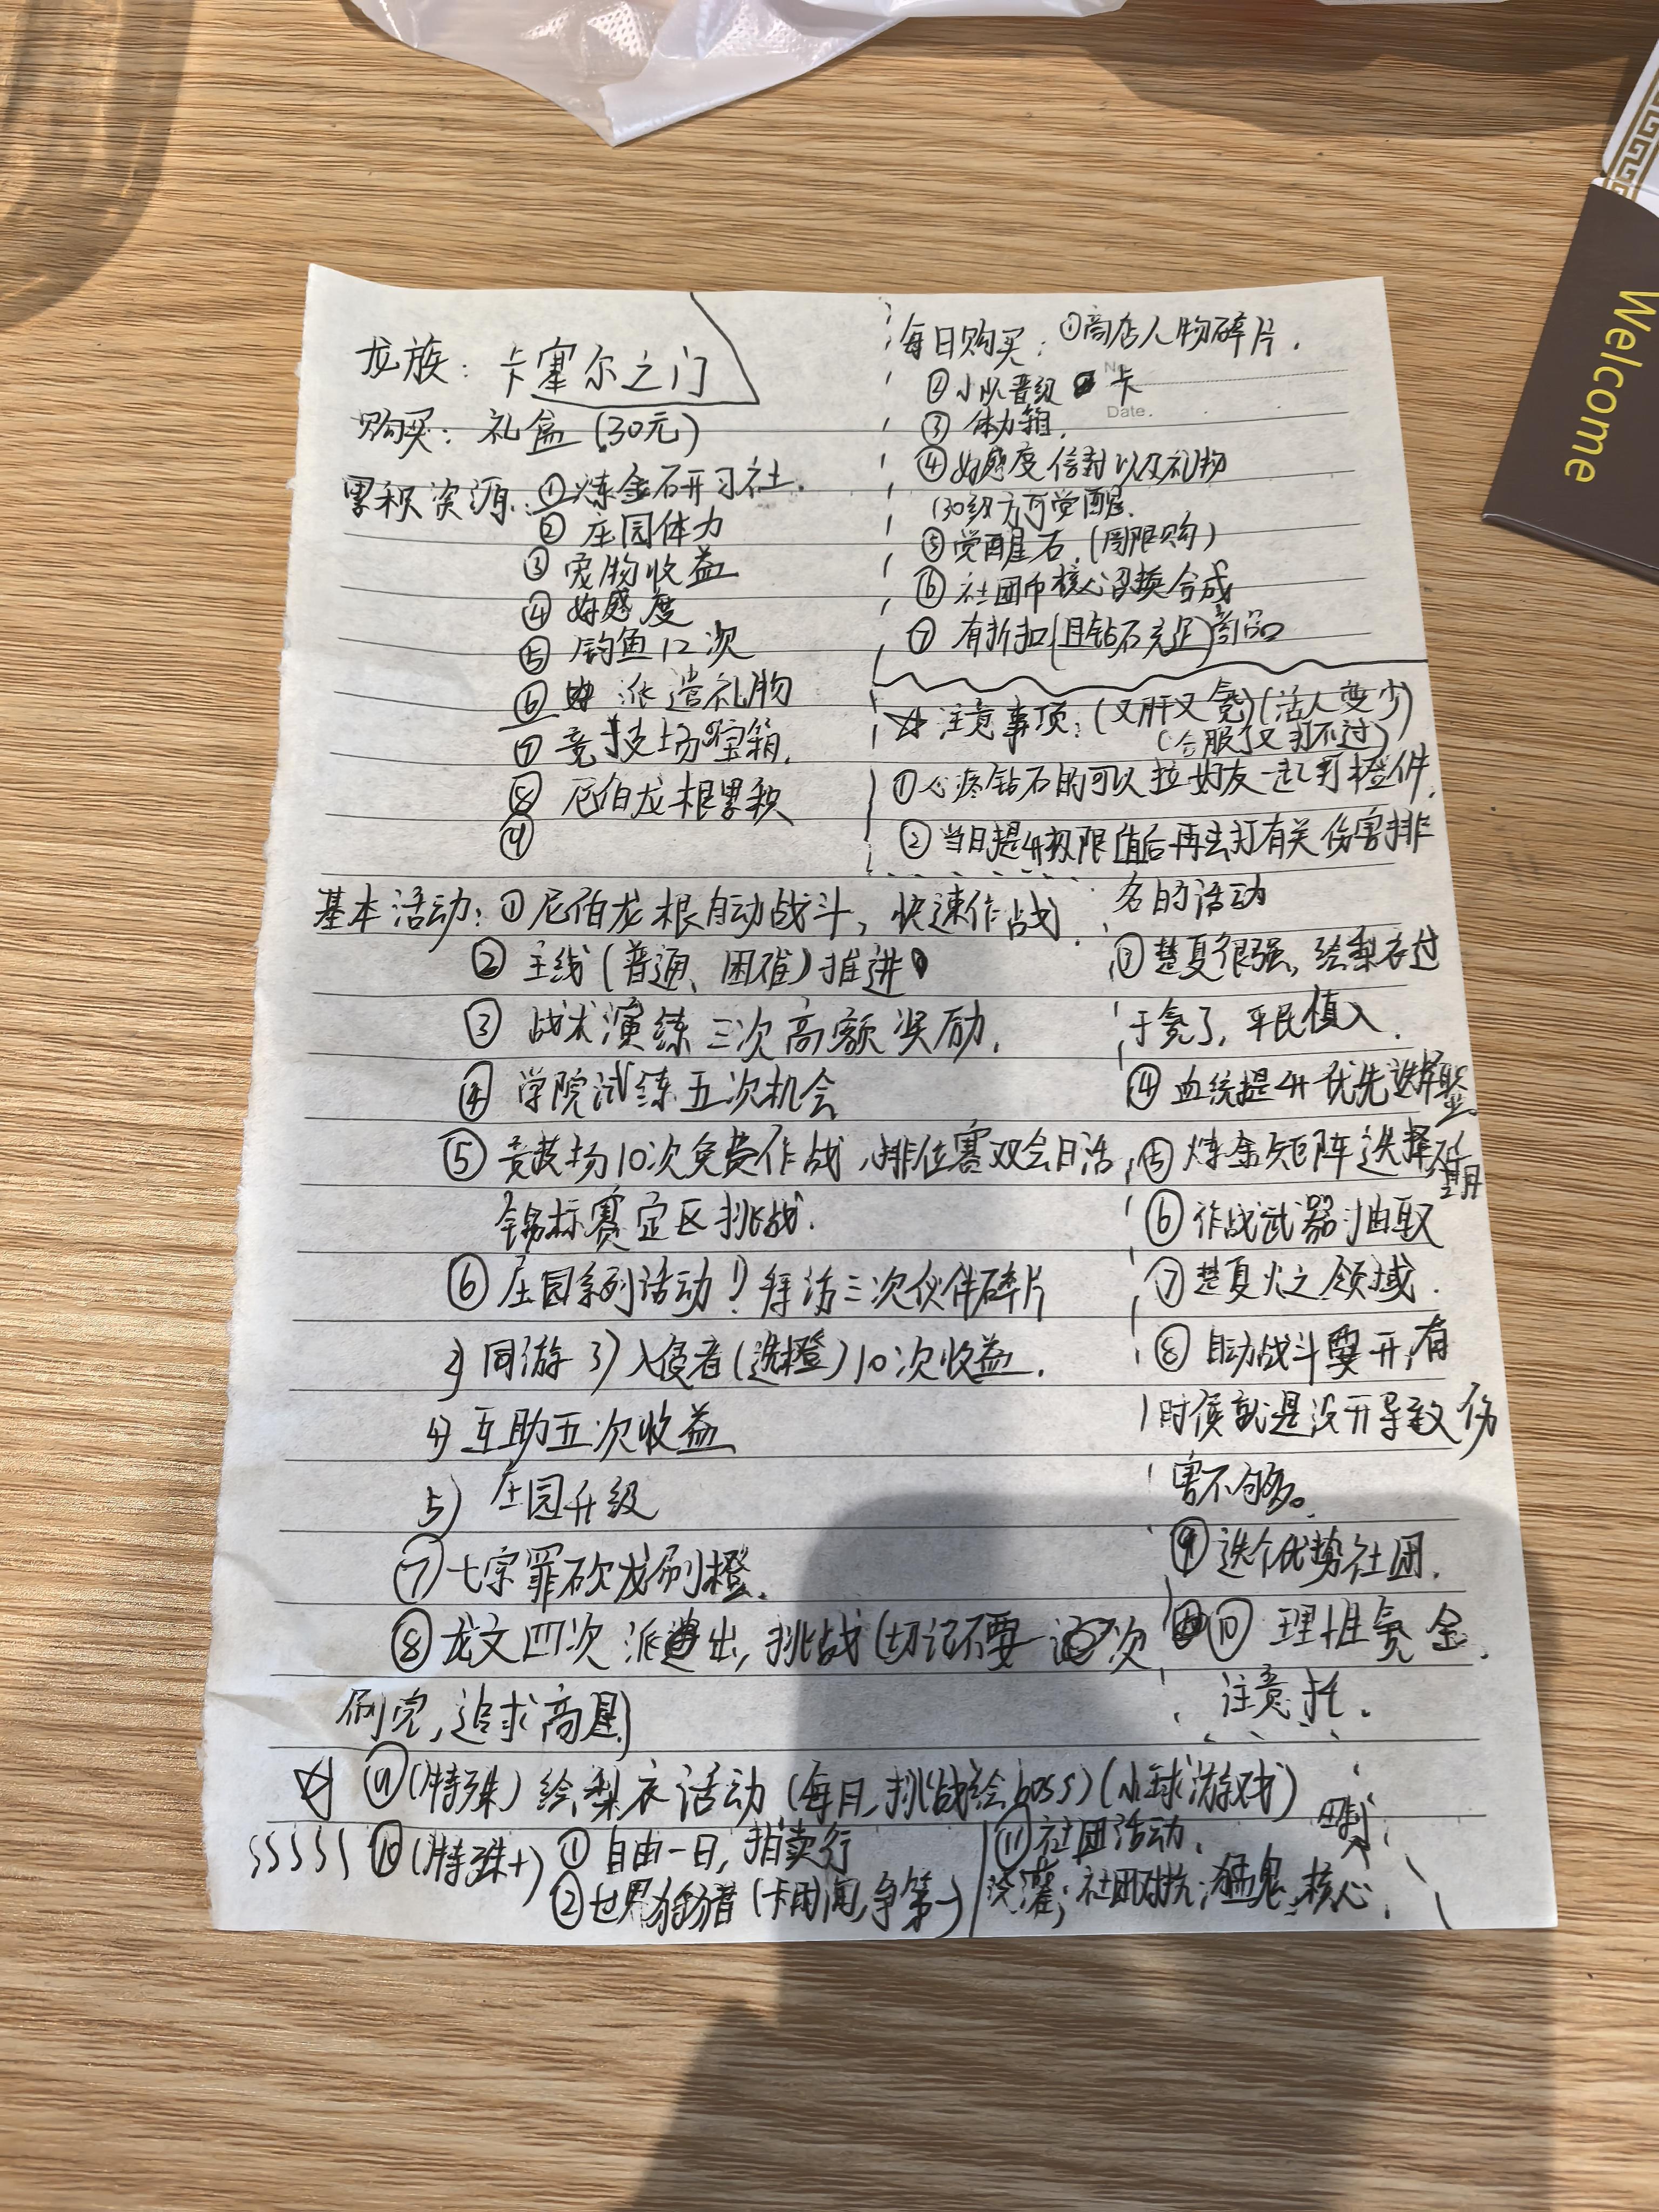 龙族：卡塞尔之门
购买：礼盒（30元）
累积资源：①炼金研习社.
②庄园体力
③宠物收益
④好感度
⑤钓鱼12次
⑥派遣礼物
⑦竞技场宝箱.
⑧尼伯龙根累积
⑨
每日购买：①商店人物碎片.
No.
②小队晋级卡
Date.
③体力箱.
④好感度信封以及礼物
（30级方可觉醒.
⑤觉醒石.（周限购）
⑥社团币核心召换合成
⑦有折扣（且钻石充足）商品
☆注意事项：（又肝又氪）（活人变少）
（合服了又打不过）
①心疼钻石的可以拉好友一起打橙件.
②当日提升极限值后再去打有关伤害排
名的活动
③楚夏很强，绘梨衣过
于氪了，平民慎入.
④血统提升优先选择
⑤炼金矩阵选择
⑥作战武器抽取
⑦楚夏火之领域.
⑧自动战斗要开，有
时候就是没开导致伤
害不够。
⑨选个优势社团.
⑩理性氪金.
注意托.
基本活动：①尼伯龙根自动战斗，快速作战.
②主线（普通、困难）推进
③战术演练三次高额奖励.
④学院试练五次机会
⑤竞技场10次免费作战，排位赛双会日活，
锦标赛定区挑战.
⑥庄园系列活动 1）拜访三次伙伴碎片
2）同游 3）入侵者（选橙）10次收益.
4）互助五次收益
5）庄园升级
⑦七宗罪砍龙刷橙.
⑧龙文四次派遣出，挑战（切记不要一次
刷完，追求高星）
☆⑨（特殊）绘梨衣活动（每日，挑战绘boss）（小球游戏）
SSSSS⑩（特殊+）①自由一日，拍卖行
②世界狩猎者（卡时间，争第一）
⑪社团活动.
浇灌；社团对抗；猛鬼；核心.
Welcome